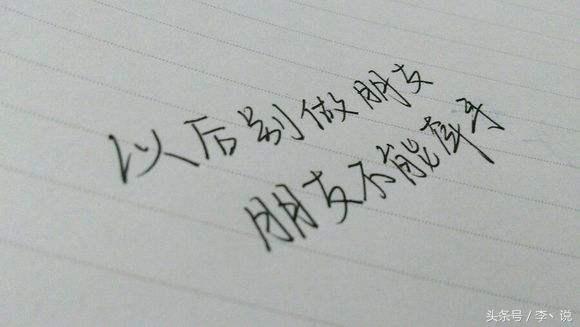 以后别做朋友
朋友不能牵手
头条号 / 李丶说